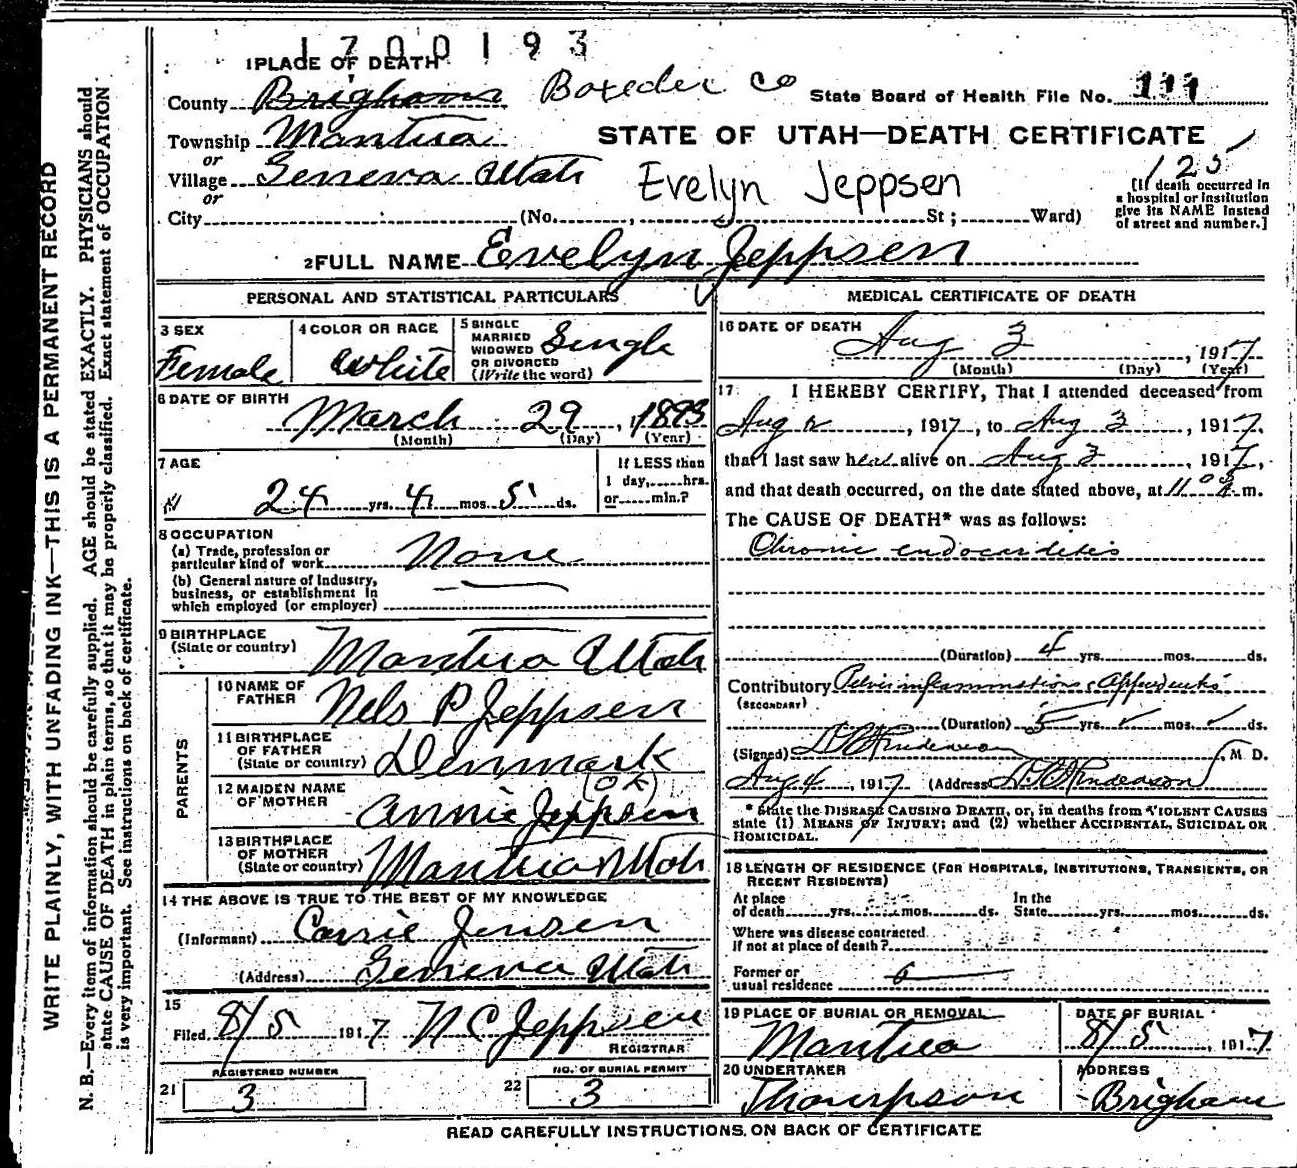 1700193
1 PLACE OF DEATH
County Brigham Boxeder Co State Board of Health File No. 111
Township Mantua STATE OF UTAH—DEATH CERTIFICATE
or
Village Geneva Utah Evelyn Jeppsen 125
or
City (No. , St; Ward)
[If death occurred in
a hospital or institution
give its NAME instead
of street and number.]
2 FULL NAME Evelyn Jeppsen
PERSONAL AND STATISTICAL PARTICULARS
3 SEX
Female
4 COLOR OR RACE
White
5 SINGLE
MARRIED
WIDOWED
OR DIVORCED
(Write the word)
Single
6 DATE OF BIRTH
March 29, 1893
(Month) (Day) (Year)
7 AGE
24 yrs. 4 mos. 5 ds.
If LESS than
1 day, hrs.
or min.?
8 OCCUPATION
(a) Trade, profession or
particular kind of work None
(b) General nature of Industry,
business, or establishment in
which employed (or employer)
9 BIRTHPLACE
(State or country) Mantua Utah
PARENTS
10 NAME OF
FATHER Nels P Jeppsen
11 BIRTHPLACE
OF FATHER
(State or country) Denmark
12 MAIDEN NAME
OF MOTHER (OK)
Annie Jeppsen
13 BIRTHPLACE
OF MOTHER
(State or country) Mantua Utah
14 THE ABOVE IS TRUE TO THE BEST OF MY KNOWLEDGE
(Informant) Carrie Jensen
(Address) Geneva Utah
15
Filed 8/5 1917 N C Jeppsen
REGISTRAR
REGISTERED NUMBER
21 3
NO. OF BURIAL PERMIT
22 3
MEDICAL CERTIFICATE OF DEATH
16 DATE OF DEATH
Aug 3, 1917
(Month) (Day) (Year)
17 I HEREBY CERTIFY, That I attended deceased from
Aug 2, 1917, to Aug 3, 1917,
that I last saw her alive on Aug 3, 1917,
and that death occurred, on the date stated above, at 11 m.
The CAUSE OF DEATH* was as follows:
Chronic endocarditis
(Duration) 4 yrs. mos. ds.
Contributory Pelvic inflammation & Appendicitis
(SECONDARY)
(Duration) 5 yrs. mos. ds.
(Signed) M D.
Aug 4, 1917 (Address)
* State the DISEASE CAUSING DEATH, or, in deaths from VIOLENT CAUSES
state (1) MEANS OF INJURY; and (2) whether ACCIDENTAL, SUICIDAL OR
HOMICIDAL.
18 LENGTH OF RESIDENCE (FOR HOSPITALS, INSTITUTIONS, TRANSIENTS, OR
RECENT RESIDENTS)
At place In the
of death yrs. mos. ds. State yrs. mos. ds.
Where was disease contracted
if not at place of death?
Former or
usual residence
19 PLACE OF BURIAL OR REMOVAL
Mantua
DATE OF BURIAL
8/5, 1917
20 UNDERTAKER
Thompson
ADDRESS
Brigham
READ CAREFULLY INSTRUCTIONS ON BACK OF CERTIFICATE
WRITE PLAINLY, WITH UNFADING INK—THIS IS A PERMANENT RECORD
N. B.—Every item of information should be carefully supplied. AGE should be stated EXACTLY. PHYSICIANS should
state CAUSE OF DEATH in plain terms, so that it may be properly classified. Exact statement of OCCUPATION
is very important. See instructions on back of certificate.